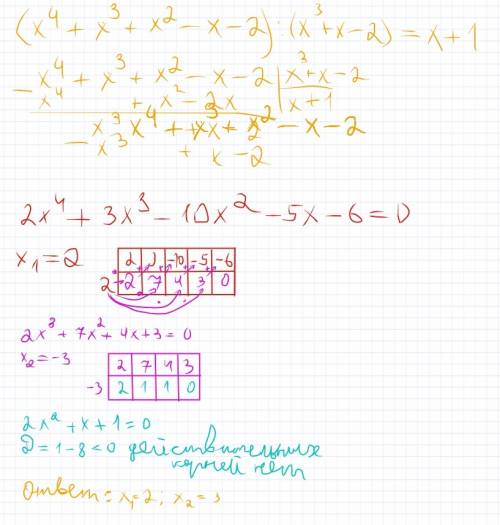 (x⁴ + x³ + x² − x − 2) : (x³ + x − 2) = x + 1
− x⁴ + x³ + x² − x − 2 | x³ + x − 2
x⁴ + x² − 2x | x + 1
x³ x⁴ + x³ + x² − x − 2
− x³ + x − 2
2x⁴ + 3x³ − 10x² − 5x − 6 = 0
x₁ = 2
2 3 −10 −5 −6
2 2 7 4 3 0
2x³ + 7x² + 4x + 3 = 0
x₂ = −3
2 7 4 3
−3 2 1 1 0
2x² + x + 1 = 0
D = 1 − 8 < 0 действительных
корней нет
Ответ: x₁ = 2; x₂ = 3